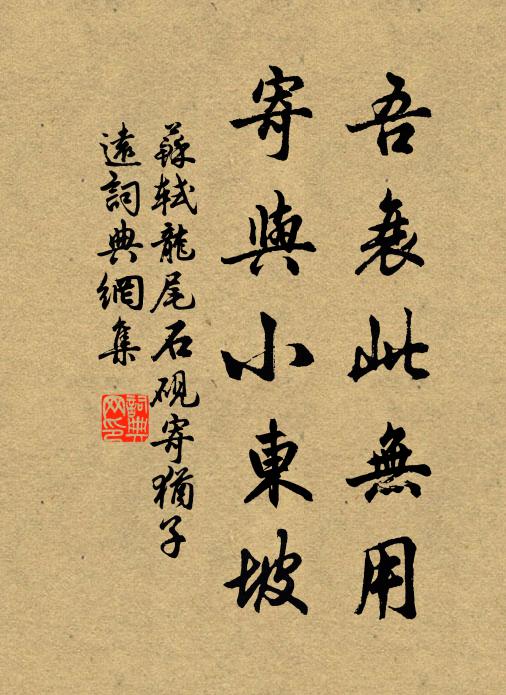 吾衰此無用
寄與小東坡
蘇軾龍尾石硯寄猶子
遠詞典網集
詞典网印